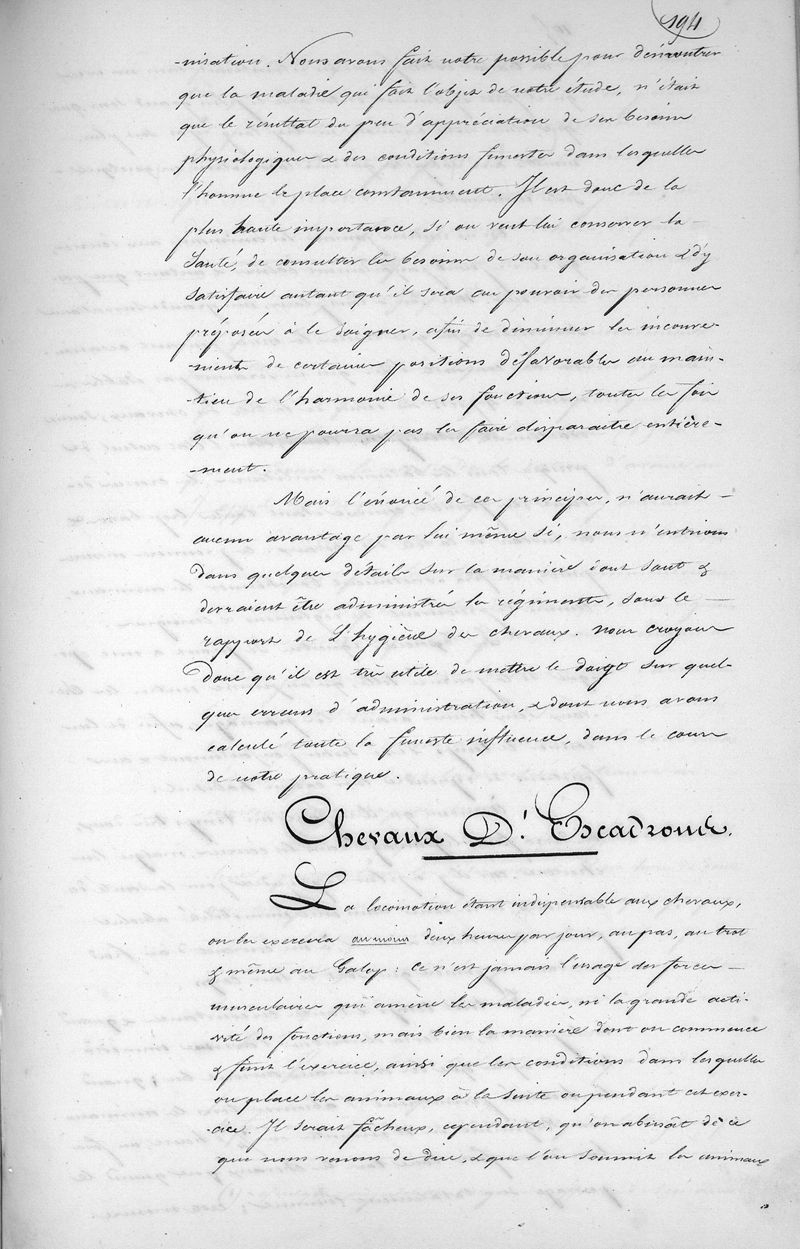 194
-nisation. Nous avons fait notre possible pour démontrer
que la maladie qui fait l'objet de notre étude, n'était
que le résultat du peu d'appréciation de ses besoins
physiologiques & des conditions funestes dans lesquelles
l'homme le place constamment. Il est donc de la
plus haute importance, si on veut lui conserver la
santé, de consulter les besoins de son organisation & d'y
satisfaire autant qu'il sera au pouvoir des personnes
préposées à le soigner, afin de diminuer les inconvé-
nients de certaines positions défavorables au main-
-tien de l'harmonie de ses fonctions, toutes les fois
qu'on ne pourra pas les faire disparaitre entière-
-ment.
Mais l'énoncé de ces principes, n'aurait
aucun avantage par lui même si, nous n'entrions
dans quelques détails sur la manière dont sont &
devraient être administrés les régiments, sous le
rapport de l'hygiène des chevaux. Nous croyons
donc qu'il est très utile de mettre le doigt sur quel-
ques erreurs d'administration, & dont nous avons
calculé toute la funeste influence, dans le cours
de notre pratique.
Chevaux D'Escadrons.
La locomotion étant indispensable aux chevaux,
on les exercera au moins deux heures par jour, au pas, au trot
& même au Galop: ce n'est jamais l'usage des forces
musculaires qui amène les maladies, ni la grande acti-
vité des fonctions, mais bien la manière dont on commence
& finit l'exercice, ainsi que les conditions dans lesquelles
on place les animaux à la suite ou pendant cet exer-
-cice. Il serait fâcheux, cependant, qu'on abusât de ce
que nous venons de dire, & que l'on soumit les animaux